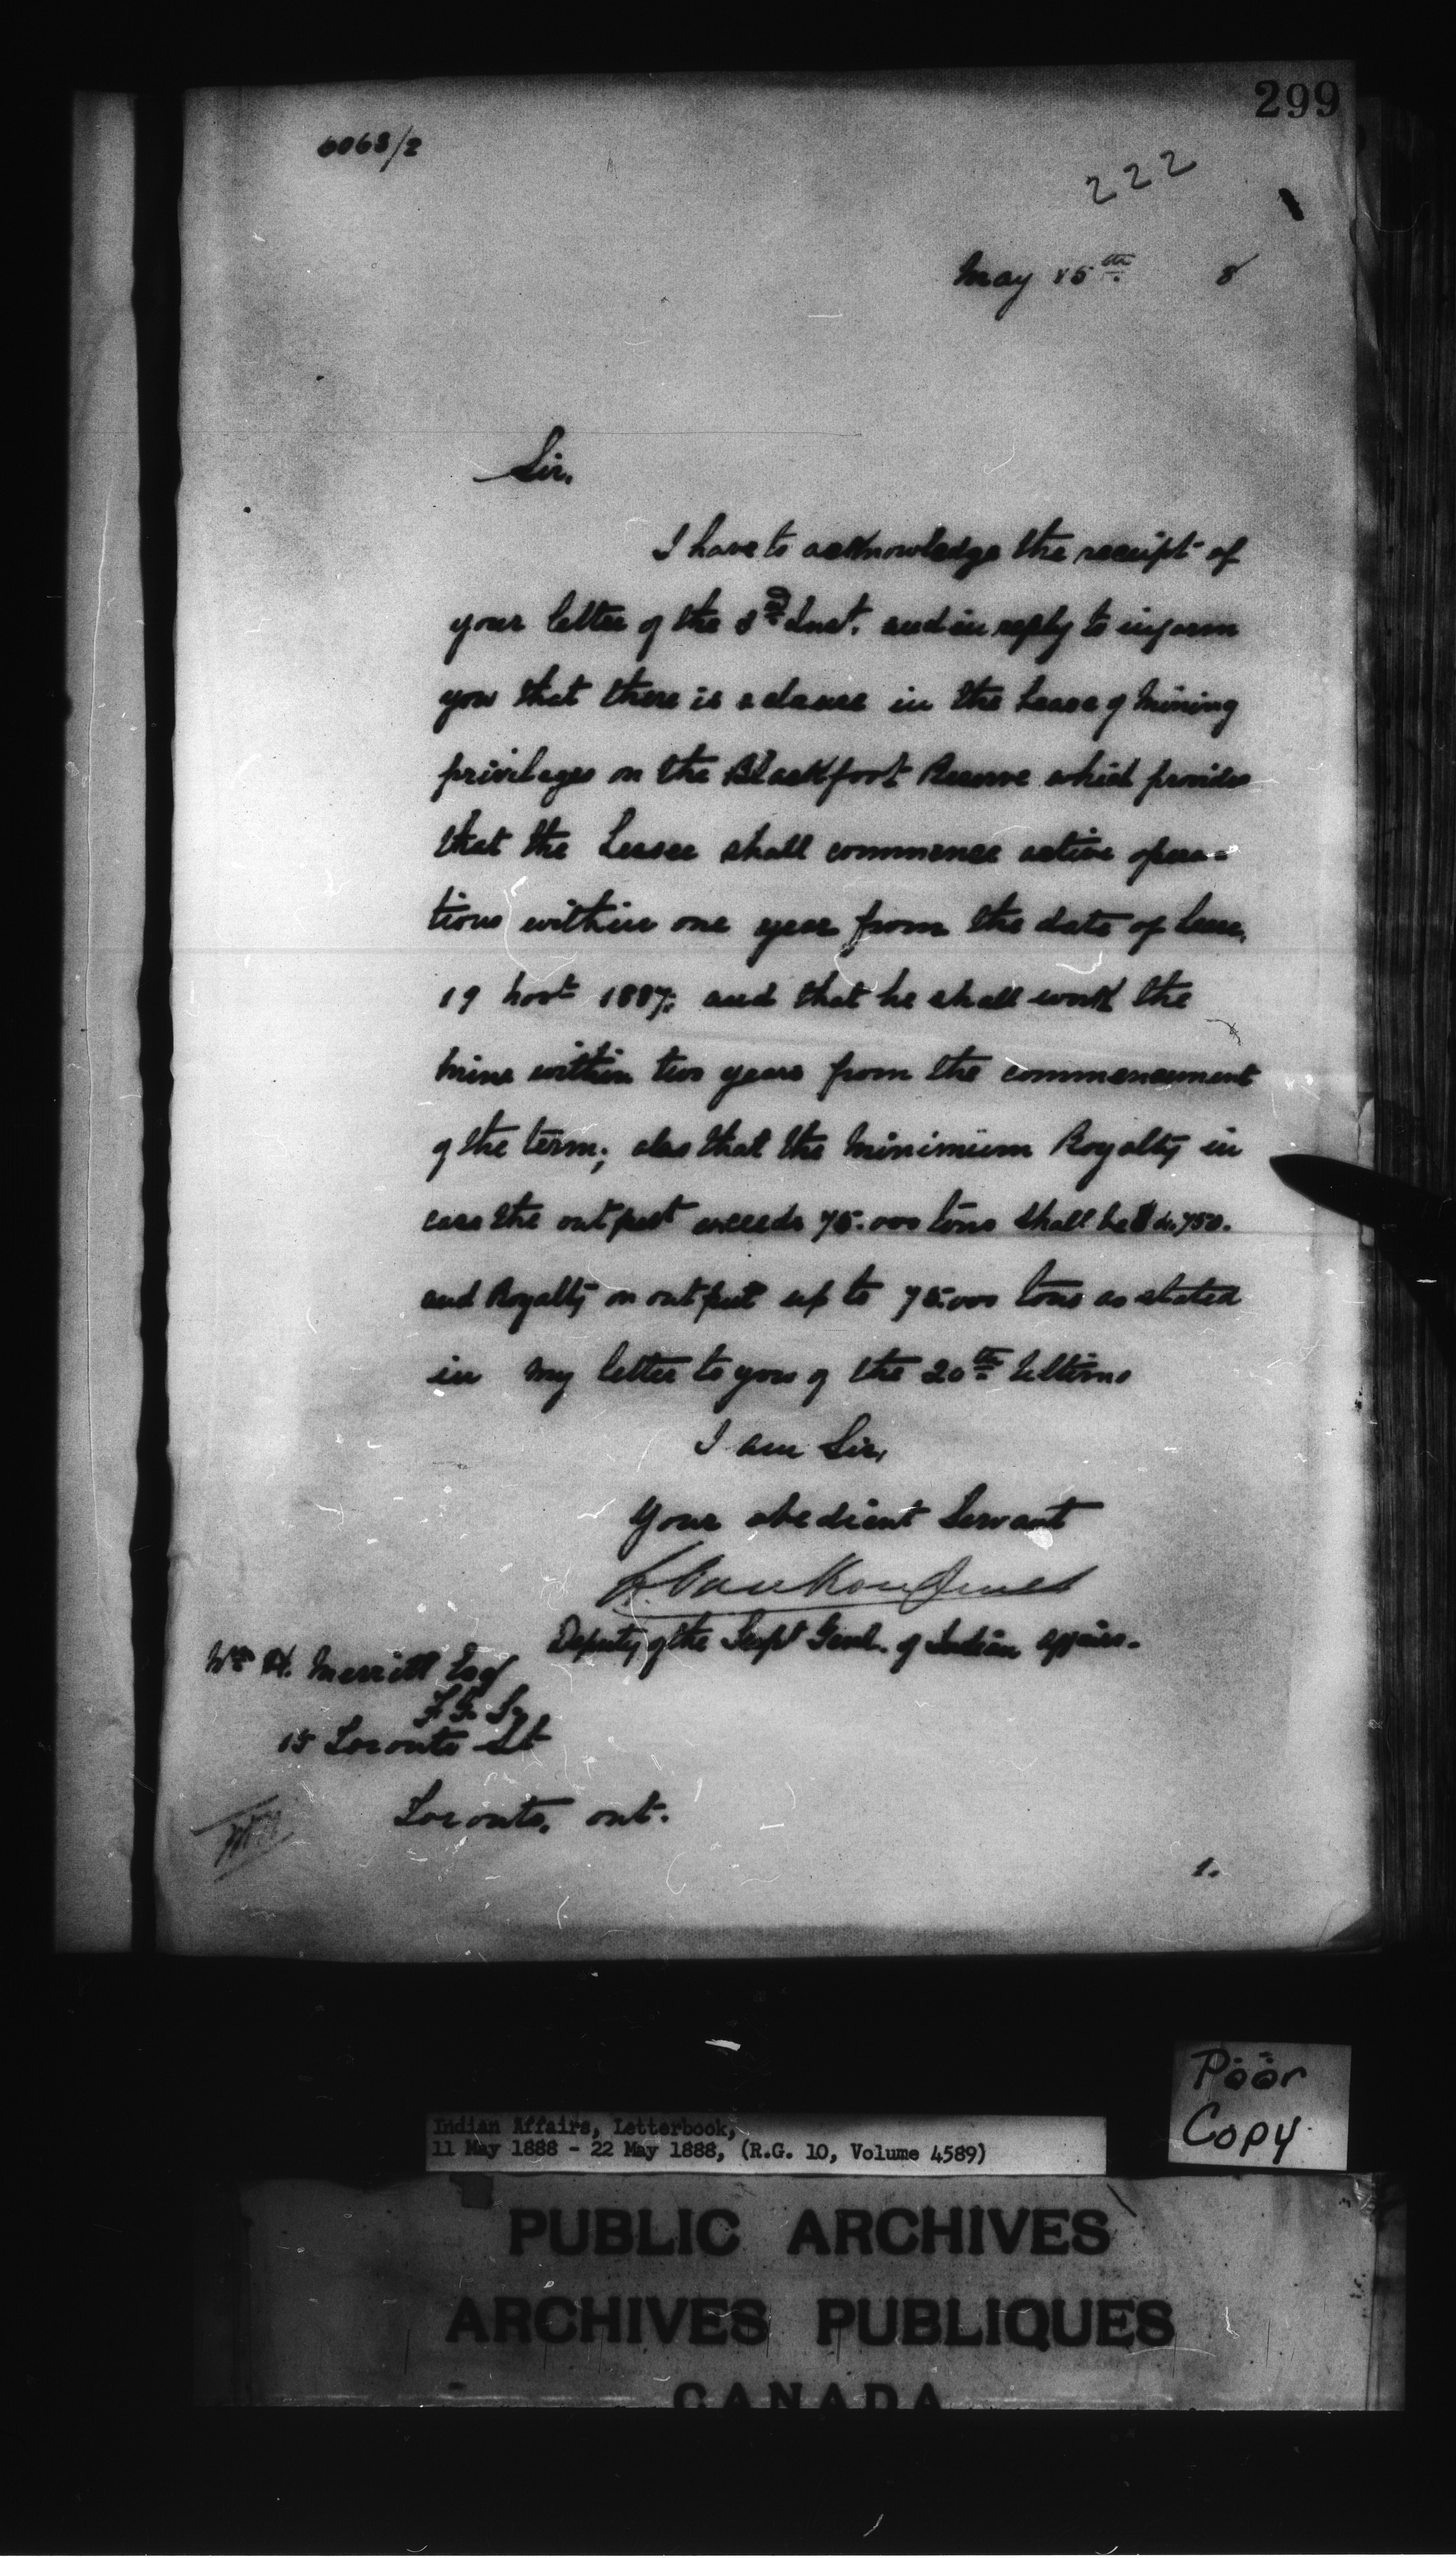 299
6063/2
222
May 15th 8
Sir,
I have to acknowledge the receipt of
your letter of the 3rd Inst. and in reply to inform
you that there is a clause in the Lease of Mining
privileges on the Blackfoot Reserve which provides
that the Lessee shall commence active opera-
tions within one year from the date of lease,
19 Novr 1887; and that he shall work the
Mine within two years from the commencement
of the term; also that the Minimum Royalty in
case the output exceeds 75.000 tons shall be 750.
and Royalty on output up to 75.000 tons as stated
in my letter to you of the 20th Ultimo
I am Sir,
Your obedient Servant
L. VanKoughnet
Deputy of the Supt Genl. of Indian Affairs.
Wm H. Merritt Esq
F.G.S,
15 Toronto St
Toronto, Ont.
1.
Poor
Copy
Indian Affairs, Letterbook,
11 May 1888 - 22 May 1888, (R.G. 10, Volume 4589)
PUBLIC ARCHIVES
ARCHIVES PUBLIQUES
CANADA